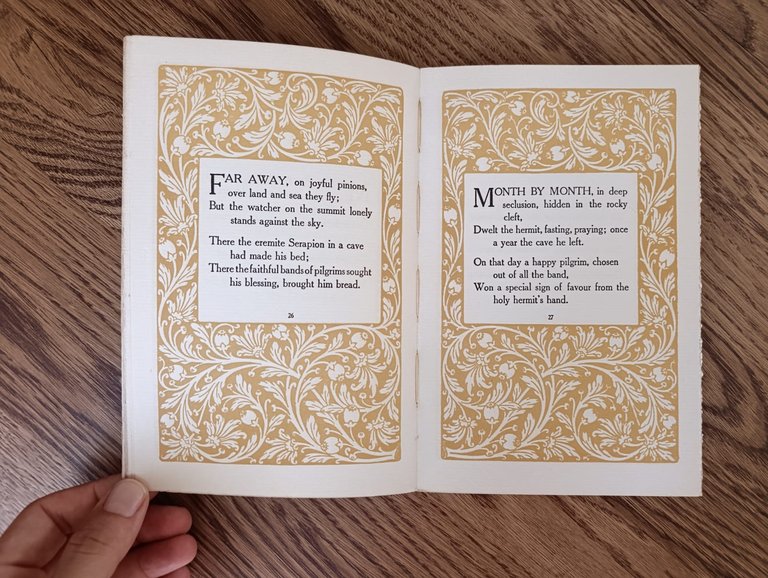 FAR AWAY, on joyful pinions,
over land and sea they fly;
But the watcher on the summit lonely
stands against the sky.
There the eremite Serapion in a cave
had made his bed;
There the faithful bands of pilgrims sought
his blessing, brought him bread.
26
MONTH BY MONTH, in deep
seclusion, hidden in the rocky
cleft,
Dwelt the hermit, fasting, praying; once
a year the cave he left.
On that day a happy pilgrim, chosen
out of all the band,
Won a special sign of favour from the
holy hermit's hand.
27